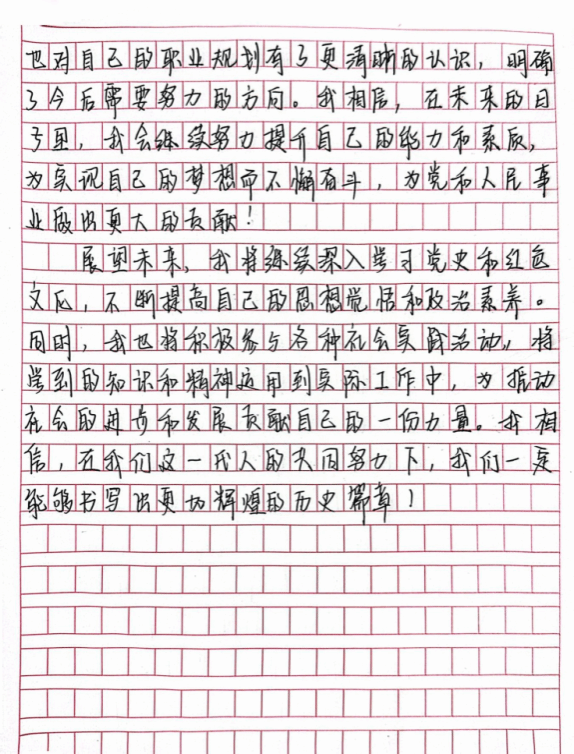 也对自己的职业规划有了更清晰的认识，明确
了今后需要努力的方向。我相信，在未来的日
子里，我会继续努力提升自己的能力和素质，
为实现自己的梦想而不懈奋斗，为党和人民事
业做出更大的贡献！
展望未来，我将继续深入学习党史和红色
文化，不断提高自己的思想觉悟和政治素养。
同时，我也将积极参与各种社会实践活动，将
学到的知识和精神运用到实际工作中，为推动
社会的进步和发展贡献自己的一份力量。我相
信，在我们这一代人的共同努力下，我们一定
能够书写出更加辉煌的历史篇章！